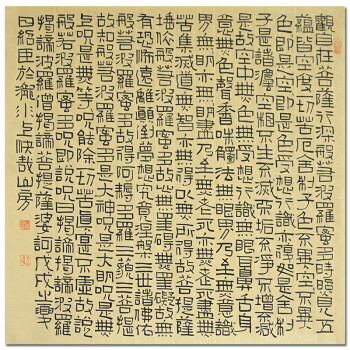 觀自在菩薩行深般若波羅蜜多時照見五
蘊皆空度一切苦厄舍利子色不異空空不異
色色即是空空即是色受想行識亦復如是舍利
子是諸法空相不生不滅不垢不淨不增不減
是故空中無色無受想行識無眼耳鼻舌身
意無色聲香味觸法無眼界乃至無意識
界無無明亦無無明盡乃至無老死亦無老死盡無
苦集滅道無智亦無得以無所得故菩提薩
埵依般若波羅蜜多故心無罣礙無罣礙故無
有恐怖遠離顛倒夢想究竟涅槃三世諸佛依
般若波羅蜜多故得阿耨多羅三藐三菩提
故知般若波羅蜜多是大神咒是大明咒是無
上咒是無等等咒能除一切苦真實不虛故說
般若波羅蜜多咒即說咒曰揭諦揭諦波羅
揭諦波羅僧揭諦菩提薩婆訶戊戌小雪
日於快哉山房